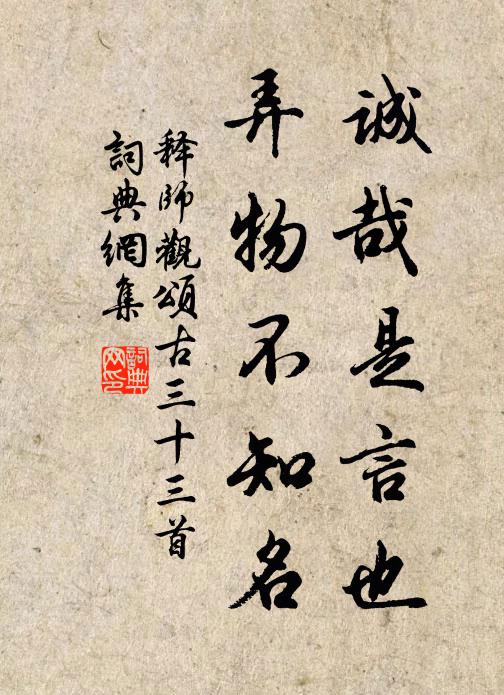 誠哉是言也
弄物不知名
释師觀頌古三十三首
詞典網集
詞典网印